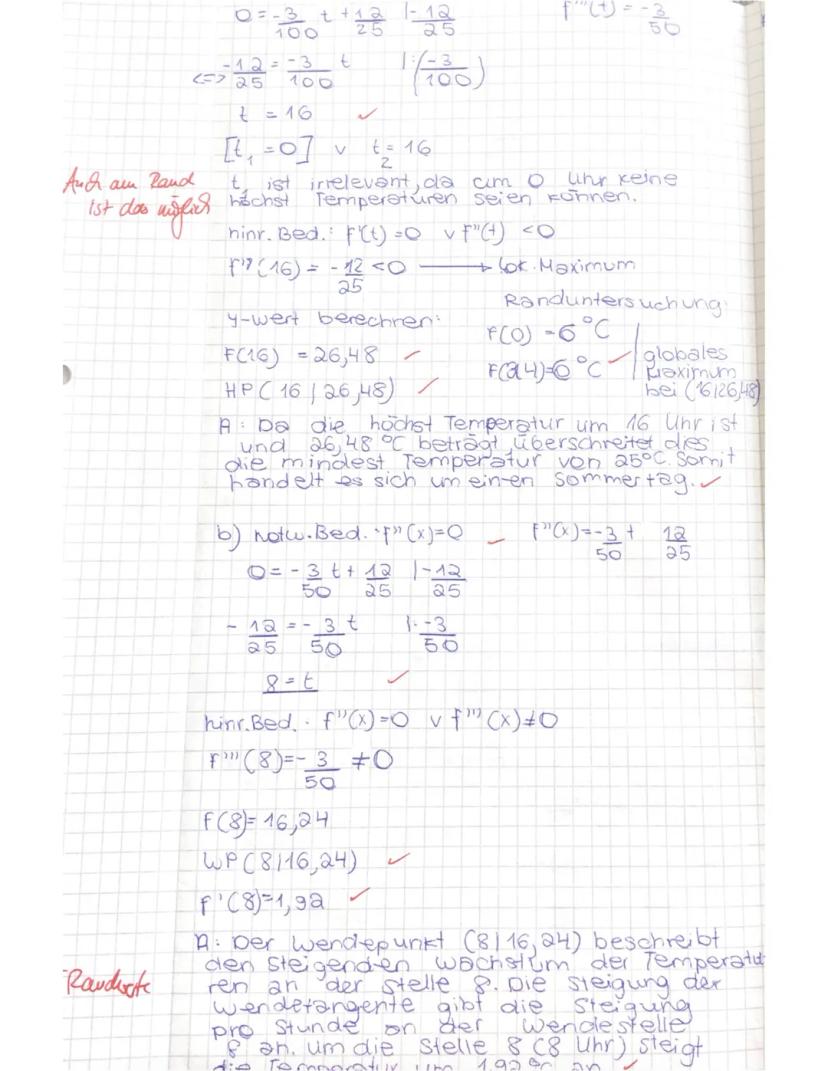 0 = -3/100 t + 12/25 |-12/25 f'''(t) = -3/50
<=> -12/25 = -3/100 t |:(-3/100)
t = 16 ✓
[t₁ = 0] v t₂ = 16
Auch am Rand
ist das möglich
t₁ ist irrelevant, da um 0 Uhr keine
höchst Temperaturen seien können.
hinr. Bed.: f'(t) = 0 v f''(t) < 0
f''(16) = -12/25 < 0 → lok. Maximum
Randuntersuchung:
y-wert berechnen:
F(0) = 6 °C
F(16) = 26,48 ✓
F(24) = 6 °C ✓
globales
Maximum
bei (16|26,48)
HP( 16 | 26,48) ✓
A: Da die höchst Temperatur um 16 Uhr ist
und 26,48 °C beträgt, überschreitet dies
die mindest Temperatur von 25°C. Somit
handelt es sich um einen Sommertag. ✓
b) notw. Bed. f''(x)=0 f''(x)=-3/50 t 12/25
0 = -3/50 t + 12/25 |-12/25
-12/25 = -3/50 t |: -3/50
8 = t ✓
hinr. Bed. f''(x)=0 v f'''(x)≠0
f'''(8) = -3/50 ≠ 0
f(8) = 16,24
WP (8|16,24) ✓
f'(8)=1,92 ✓
A: Der Wendepunkt (8|16,24) beschreibt
den steigenden Wachstum der Temperatu
ren an der stelle 8. Die steigung der
Randwerte
wendetangente gibt die Steigung
pro Stunde an der Wendestelle
8 an. um die Stelle 8 (8 Uhr) steigt
die Temperatur um 1,92 °C an ✓